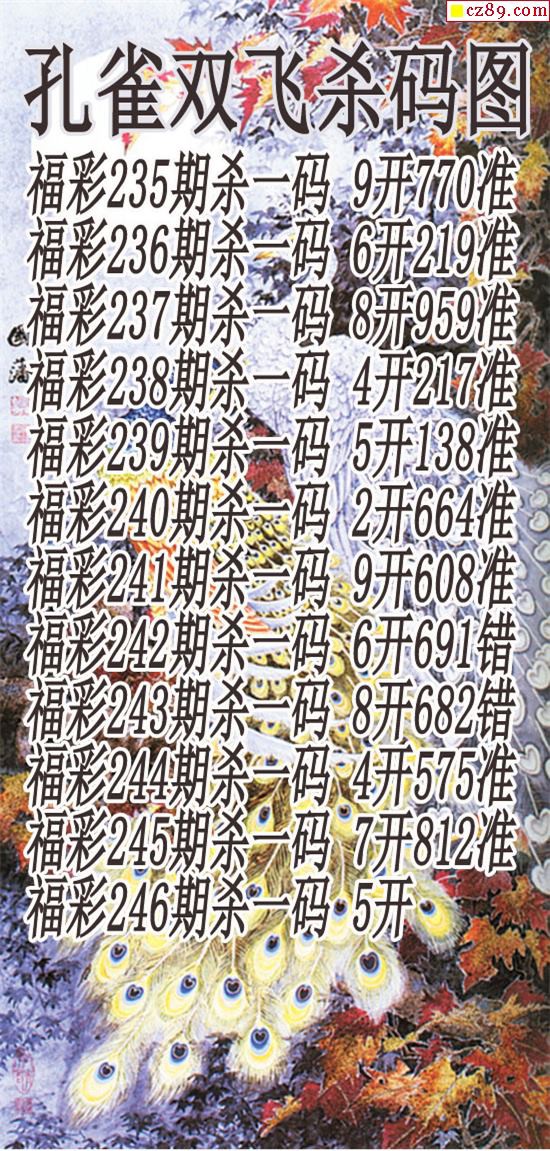 cz89.com
孔雀双飞杀码图
福彩235期杀一码 9开770准
福彩236期杀一码 6开219准
福彩237期杀一码 8开959准
福彩238期杀一码 4开217准
福彩239期杀一码 5开138准
福彩240期杀一码 2开664准
福彩241期杀一码 9开608准
福彩242期杀一码 6开691错
福彩243期杀一码 8开682错
福彩244期杀一码 4开575准
福彩245期杀一码 7开812准
福彩246期杀一码 5开